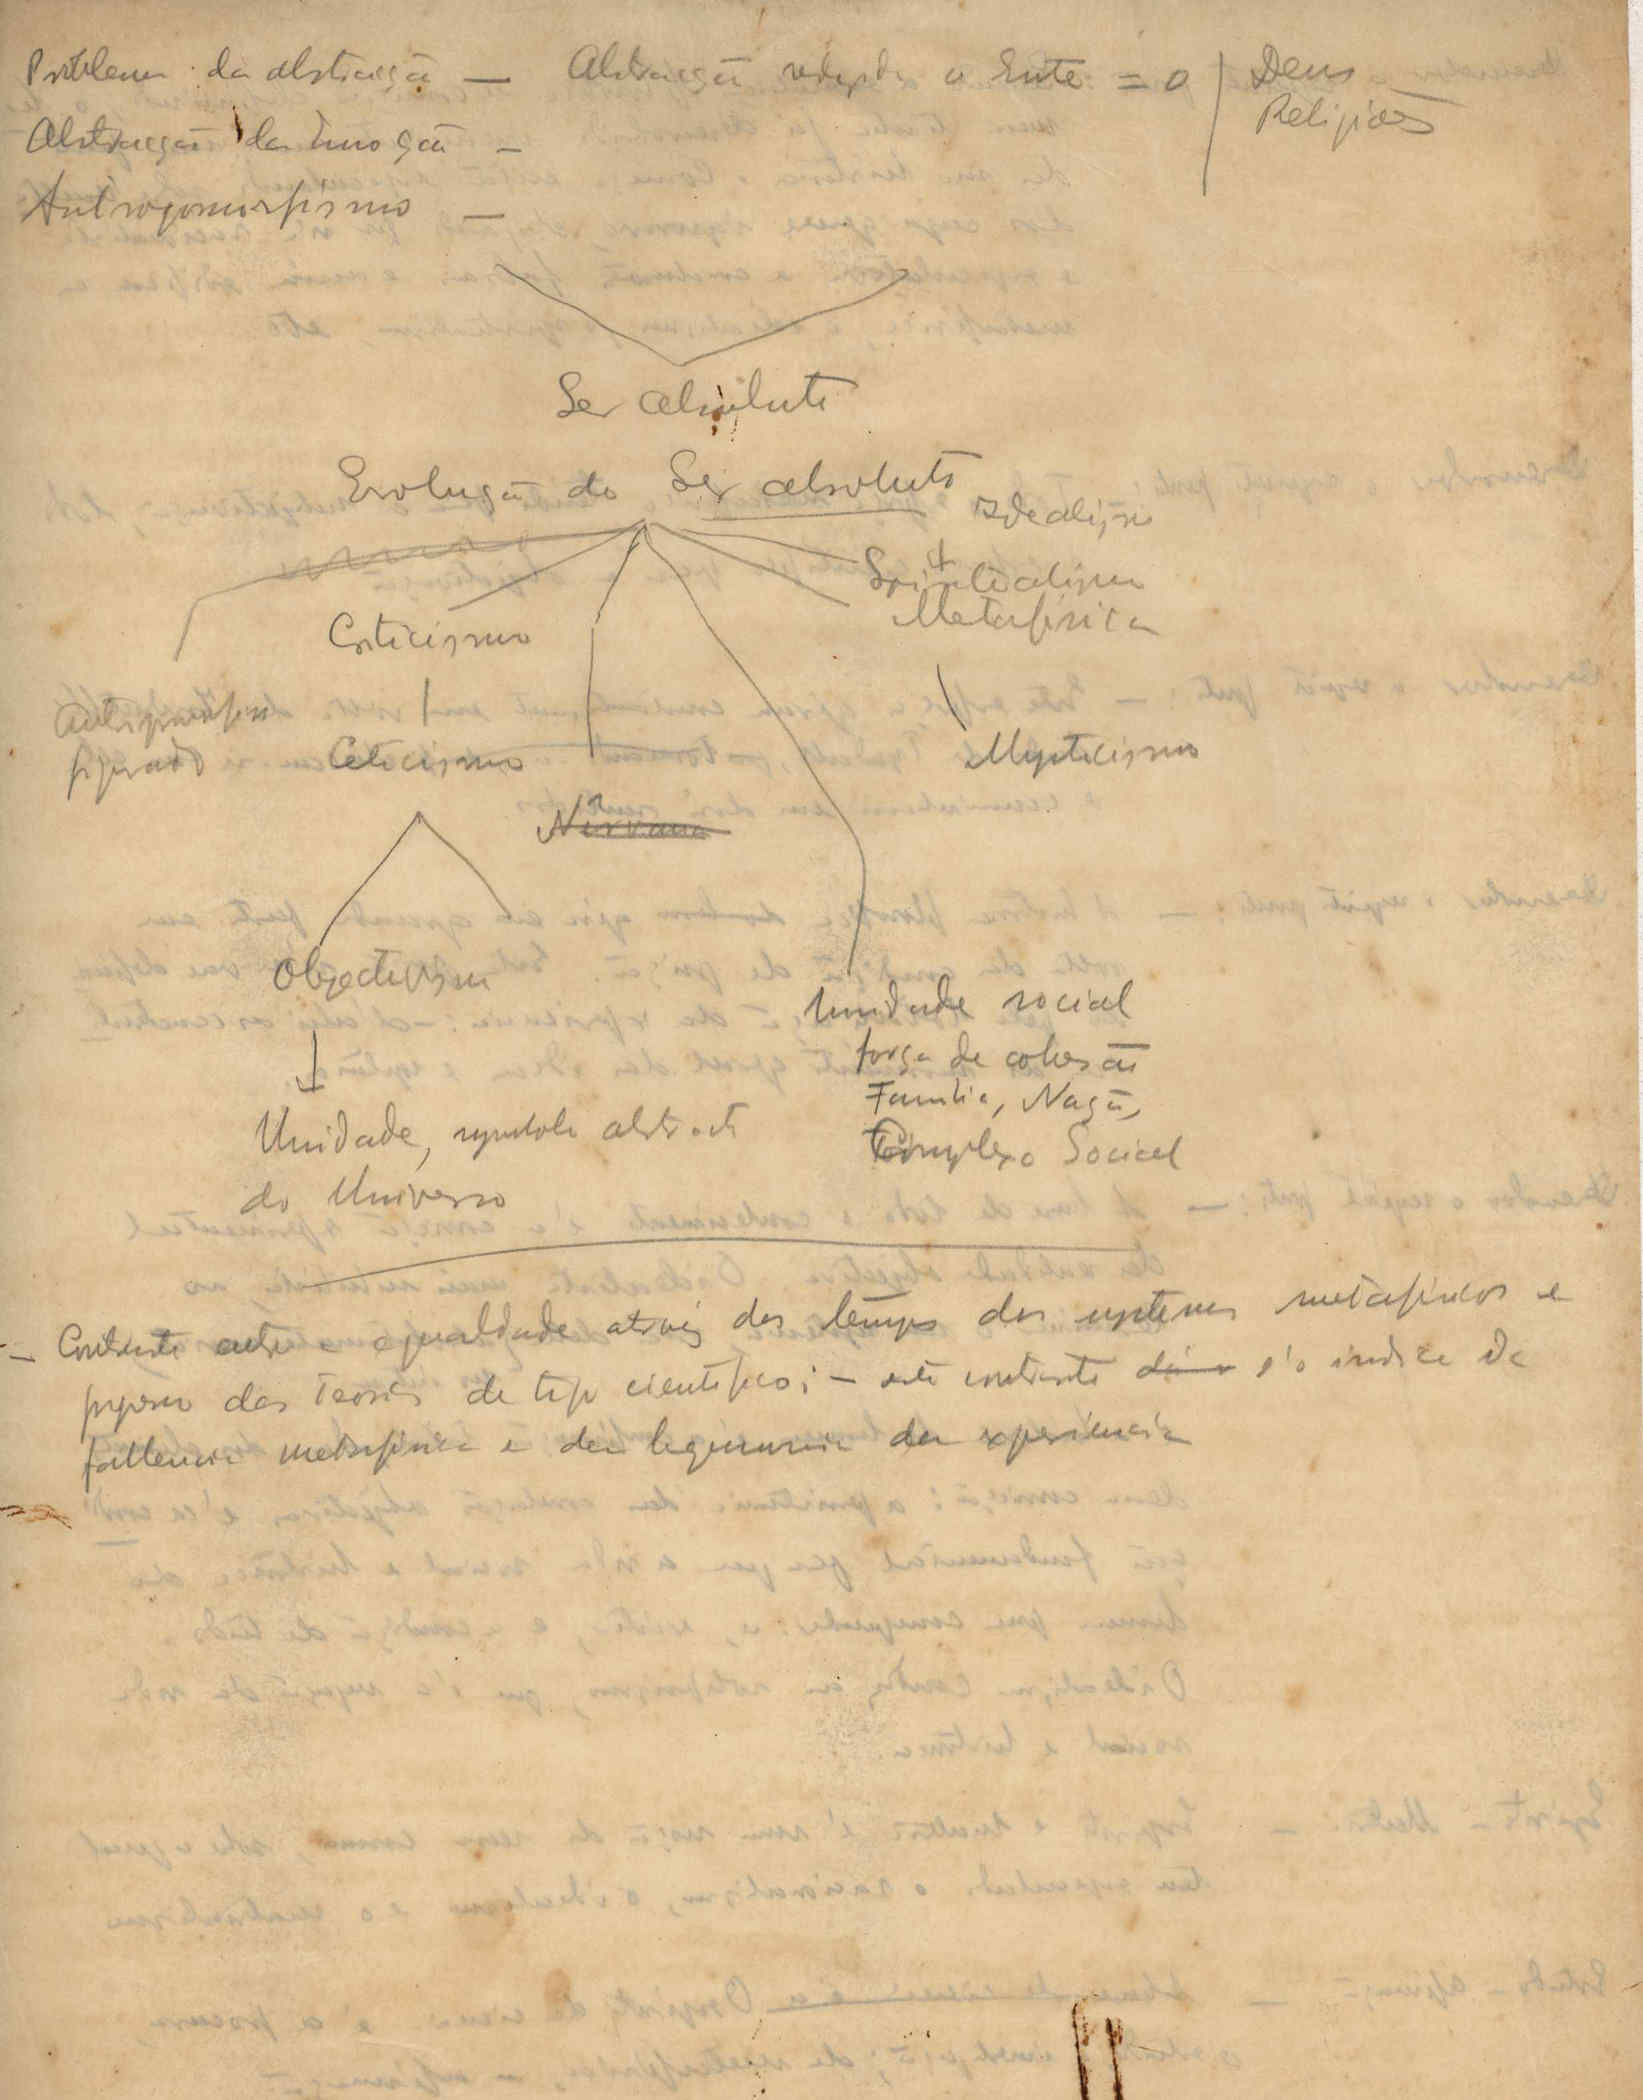 Problema da abstracção — Abstracção redusida a Ente = 0 | Deus
Religiões
Abstracção da Emoção —
Antropomorfismo —
Ser absoluto
Evolução do Ser absoluto
Idealismo
+
Spiritualismo
Metafisica
Criticismo
Antropomorfismo
figurado
Ceticismo
Mysticismo
Nirvana
Objectivismo
Unidade social
força de cohesão
Familia, Nação,
Complexo Social
Unidade, symbolo abstracto
do Universo
— Contraste entre a egualdade atravez dos tempos dos systemas metafisicos e
progresso das Teorias de typo cientifico; — este contraste é o indice da
fallencia metafisica e da legitimidade da experiencia